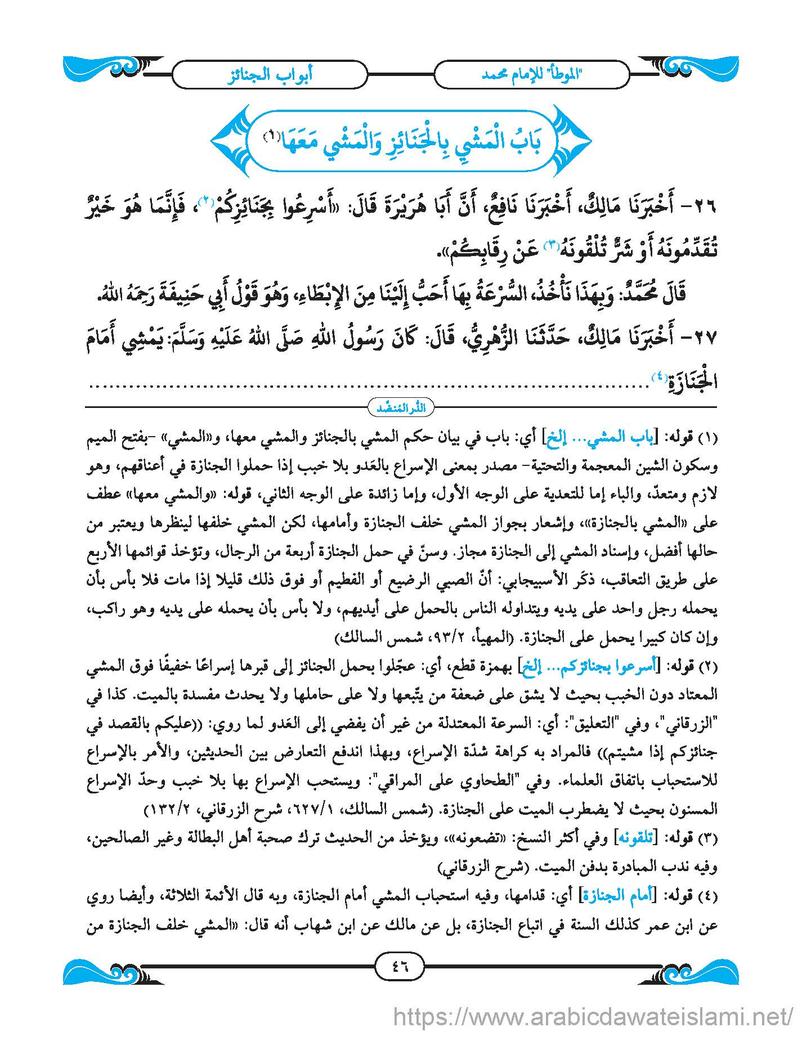 "الموطأ" للإمام محمد
أبواب الجنائز
بَابُ الْمَشْيِ بِالْجَنَائِزِ وَالْمَشْيِ مَعَهَا(١)
٢٦- أَخْبَرَنَا مَالِكٌ، أَخْبَرَنَا نَافِعٌ، أَنَّ أَبَا هُرَيْرَةَ قَالَ: «أَسْرِعُوا بِجَنَائِزِكُمْ(٢)، فَإِنَّمَا هُوَ خَيْرٌ
تُقَدِّمُونَهُ أَوْ شَرٌّ تُلْقُونَهُ(٣) عَنْ رِقَابِكُمْ».
قَالَ مُحَمَّدٌ: وَبِهَذَا نَأْخُذُ، السُّرْعَةُ بِهَا أَحَبُّ إِلَيْنَا مِنَ الْإِبْطَاءِ، وَهُوَ قَوْلُ أَبِي حَنِيفَةَ رَحِمَهُ اللهُ.
٢٧- أَخْبَرَنَا مَالِكٌ، حَدَّثَنَا الزُّهْرِيُّ، قَالَ: كَانَ رَسُولُ اللهِ صَلَّى اللهُ عَلَيْهِ وَسَلَّمَ: يَمْشِي أَمَامَ
الْجَنَازَةِ(٤)................................................................................
الدُّر المُنضَّد
(١) قوله: [باب المشي... إلخ] أي: باب في بيان حكم المشي بالجنائز والمشي معها، و«المشي» -بفتح الميم
وسكون الشين المعجمة والتحتية- مصدر بمعنى الإسراع بالعَدو بلا خبب إذا حملوا الجنازة في أعناقهم، وهو
لازم ومتعدّ، والباء إما للتعدية على الوجه الأول، وإما زائدة على الوجه الثاني، قوله: «والمشي معها» عطف
على «المشي بالجنازة»، وإشعار بجواز المشي خلف الجنازة وأمامها، لكن المشي خلفها لينظرها ويعتبر من
حالها أفضل، وإسناد المشي إلى الجنازة مجاز. وسنّ في حمل الجنازة أربعة من الرجال، وتؤخذ قوائمها الأربع
على طريق التعاقب، ذكَر الأسبيجابي: أنّ الصبي الرضيع أو الفطيم أو فوق ذلك قليلا إذا مات فلا بأس بأن
يحمله رجل واحد على يديه ويتداوله الناس بالحمل على أيديهم، ولا بأس بأن يحمله على يديه وهو راكب،
وإن كان كبيرا يحمل على الجنازة. (المهيأ، ٩٣/٢، شمس السالك)
(٢) قوله: [أسرعوا بجنائزكم... إلخ] بهمزة قطع، أي: عجّلوا بحمل الجنائز إلى قبرها إسراعًا خفيفًا فوق المشي
المعتاد دون الخبب بحيث لا يشق على ضعفة من يتّبعها ولا على حاملها ولا يحدث مفسدة بالميت. كذا في
"الزرقاني"، وفي "التعليق": أي: السرعة المعتدلة من غير أن يفضي إلى العَدو لما روي: ((عليكم بالقصد في
جنائزكم إذا مشيتم)) فالمراد به كراهة شدّة الإسراع، وبهذا اندفع التعارض بين الحديثين، والأمر بالإسراع
للاستحباب باتفاق العلماء. وفي "الطحاوي على المراقي": ويستحب الإسراع بها بلا خبب وحدّ الإسراع
المسنون بحيث لا يضطرب الميت على الجنازة. (شمس السالك، ٦٢٧/١، شرح الزرقاني، ١٣٢/٢)
(٣) قوله: [تلقونه] وفي أكثر النسخ: «تضعونه»، ويؤخذ من الحديث ترك صحبة أهل البطالة وغير الصالحين،
وفيه ندب المبادرة بدفن الميت. (شرح الزرقاني)
(٤) قوله: [أمام الجنازة] أي: قدامها، وفيه استحباب المشي أمام الجنازة، وبه قال الأئمة الثلاثة، وأيضا روي
عن ابن عمر كذلك السنة في اتباع الجنازة، بل عن مالك عن ابن شهاب أنه قال: «المشي خلف الجنازة من
٤٦
https://www.arabicdawateislami.net/